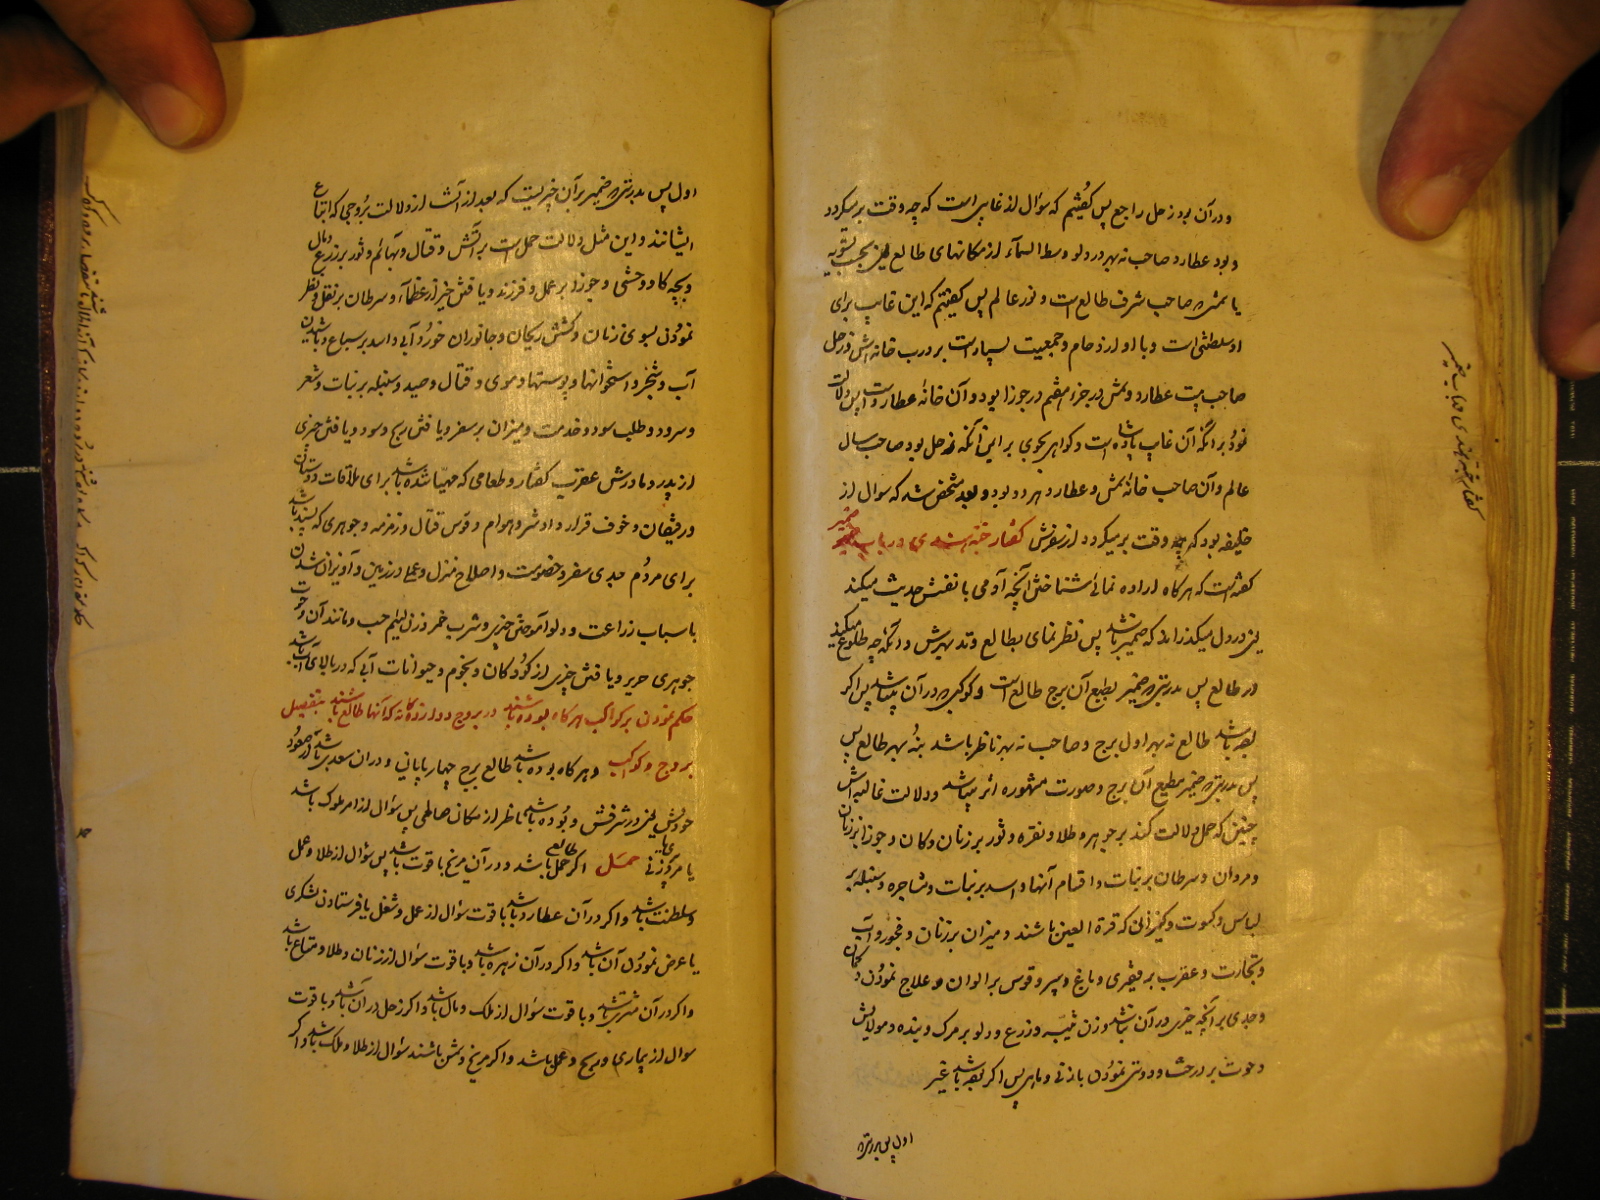 ودر آن بود زحل راجع پس گفتیم که سؤال از غایبی است که چه وقت برمیگردد
وبود عطارد صاحب نه بهر در دلو وسط السماء از مکانهای طالع
یا شمس صاحب شرف طالع است و نور عالم پس گفتیم که این غایب برای
او سلطنتی است و با او ازدحام وجمعیت بسیار است بر درب خانه اش وزحل
صاحب بیت عطارد وشمس در جزء مقیم در جوزا بود وآن خانهٔ عطارد است پس دلالت
نمود بر آنکه آن غایب پادشاه است وگواهی بجوی بر این آنکه زحل بود صاحب سال
عالم وآن صاحب خانهٔ شمس وعطارد هر دو بود وبعد مشخص شد که سؤال از
خلیفه بود که چه وقت برمیگردد از سفرش گفتار هندی در باب ضمیر
گفته است که هرگاه اراده نمائی شناختن آنچه آدمی با نفسش حدیث میکند
یعنی در دل میگذراند که ضمیر باشد پس نظر نمای بطالع و نه بهرش و آنکه چه طلوع میکند
در طالع پس بدرستی که ضمیر بطبع آن برج طالع است وکوکبی که در آن میباشد پس اگر
بوده باشد طالع نه بهر اول برج وصاحب نه بهر ناظر باشد بنه بهر طالع پس
پس بدرستی که ضمیر بطبع آن برج وصورت مشهوره اثر میباشد ودلالت غالبه اش
چنین که حمل دلالت کند بر جوهر وطلا ونقره وثور بر زنان وکان وجوزا بر زنان
ومردان وسرطان بر نبات واقسام آنها واسد بر نبات ومشاجره وسنبله بر
لباس وکسوت وکنیزانی که قرة العین باشند ومیزان بر زنان وفجور وآب
وتجارت وعقرب بر فقیری وباغ وسیر وقوس بر الوان وعلاج نمودن
وجدی بر آنچه چیزی در آن باشد وزن ثیبه وزرع ودلو بر مرک وبنده ومولایش
وحوت بر درخت ودوستی نمودن با زنی وماهی پس اگر بوده باشد غیر
اول پس بدرستی که
گفتار هندی در باب ضمیر
اول پس بدرستی که ضمیر بر آن چیزیست که بعد از آنست از دلالت بروجی که اتباع
ایشانند واین مثل دلالت حمل است بر آتش وقتال وبهائم وثور بر زرع ومال
وبچه گاو وحشی وجوزا بر عمل وفرزند ویافتن خیر از عظماء وسرطان بر نقل ونظر
نمودن بسوی زنان وکشتن ریحان وجانوران خورد آبی واسد بر سباع وپاشیدن
آب وشجر واستخوانها وپوستها وموی وقتال وصید وسنبله بر نبات وشعر
وسرود وطلب سود وخدمت ومیزان بر سفر ویافتن ربح وسود ویافتن چیزی
از پدر ومادرش عقرب گفتار وطعامی که مهیا شده باشد برای ملاقات دوستان
ورفیقان وخوف قرار واد وشر وهوام وقوس قتال وزمزمه وجوهری که پسند باشد
برای مردم جدی سفر وخصومت واصلاح منزل وعمارت زمین وآویزان شدن
باسباب زراعت ودلو آموختن چیزی وشرب خمر وزن لئیم حسب ومانند آن وحوت
جوهری حریر ویافتن چیزی از کودکان ونجوم وحیوانات آبی که در بالای آب باشد
حکم نمودن بر کواکب هرگاه بوده باشند در بروج دوازده گانه که آنها طالع باشند بتفصیل
بروج وکواکب وهرگاه بوده باشد طالع برج چهارپایانی ودر آن سعدی باشد از صعود
خودش یعنی در شرفش وبوده باشد ناظر از مکان هابطی پس سؤال از امر ملوک باشد
یا مرکوبی حمل اگر طالع حمل باشد ودر آن مریخ باقوت باشد پس سؤال از طلا وعمل
وسلطنت باشد واگر در آن عطارد باشد باقوت سؤال از عمل وشغل یا فرستادن لشکری
یا عرض نمودن آن باشد واگر در آن زهره باشد وباقوت سؤال از زنان وطلا ومتاع باشد
واگر در آن مشتری باشد وباقوت سؤال از ملک ومال باشد واگر زحل در آن باشد وباقوت
سؤال از بیماری وبرج وعمل باشد واگر مریخ وشمس باشند سؤال از طلا وملک باشد واگر